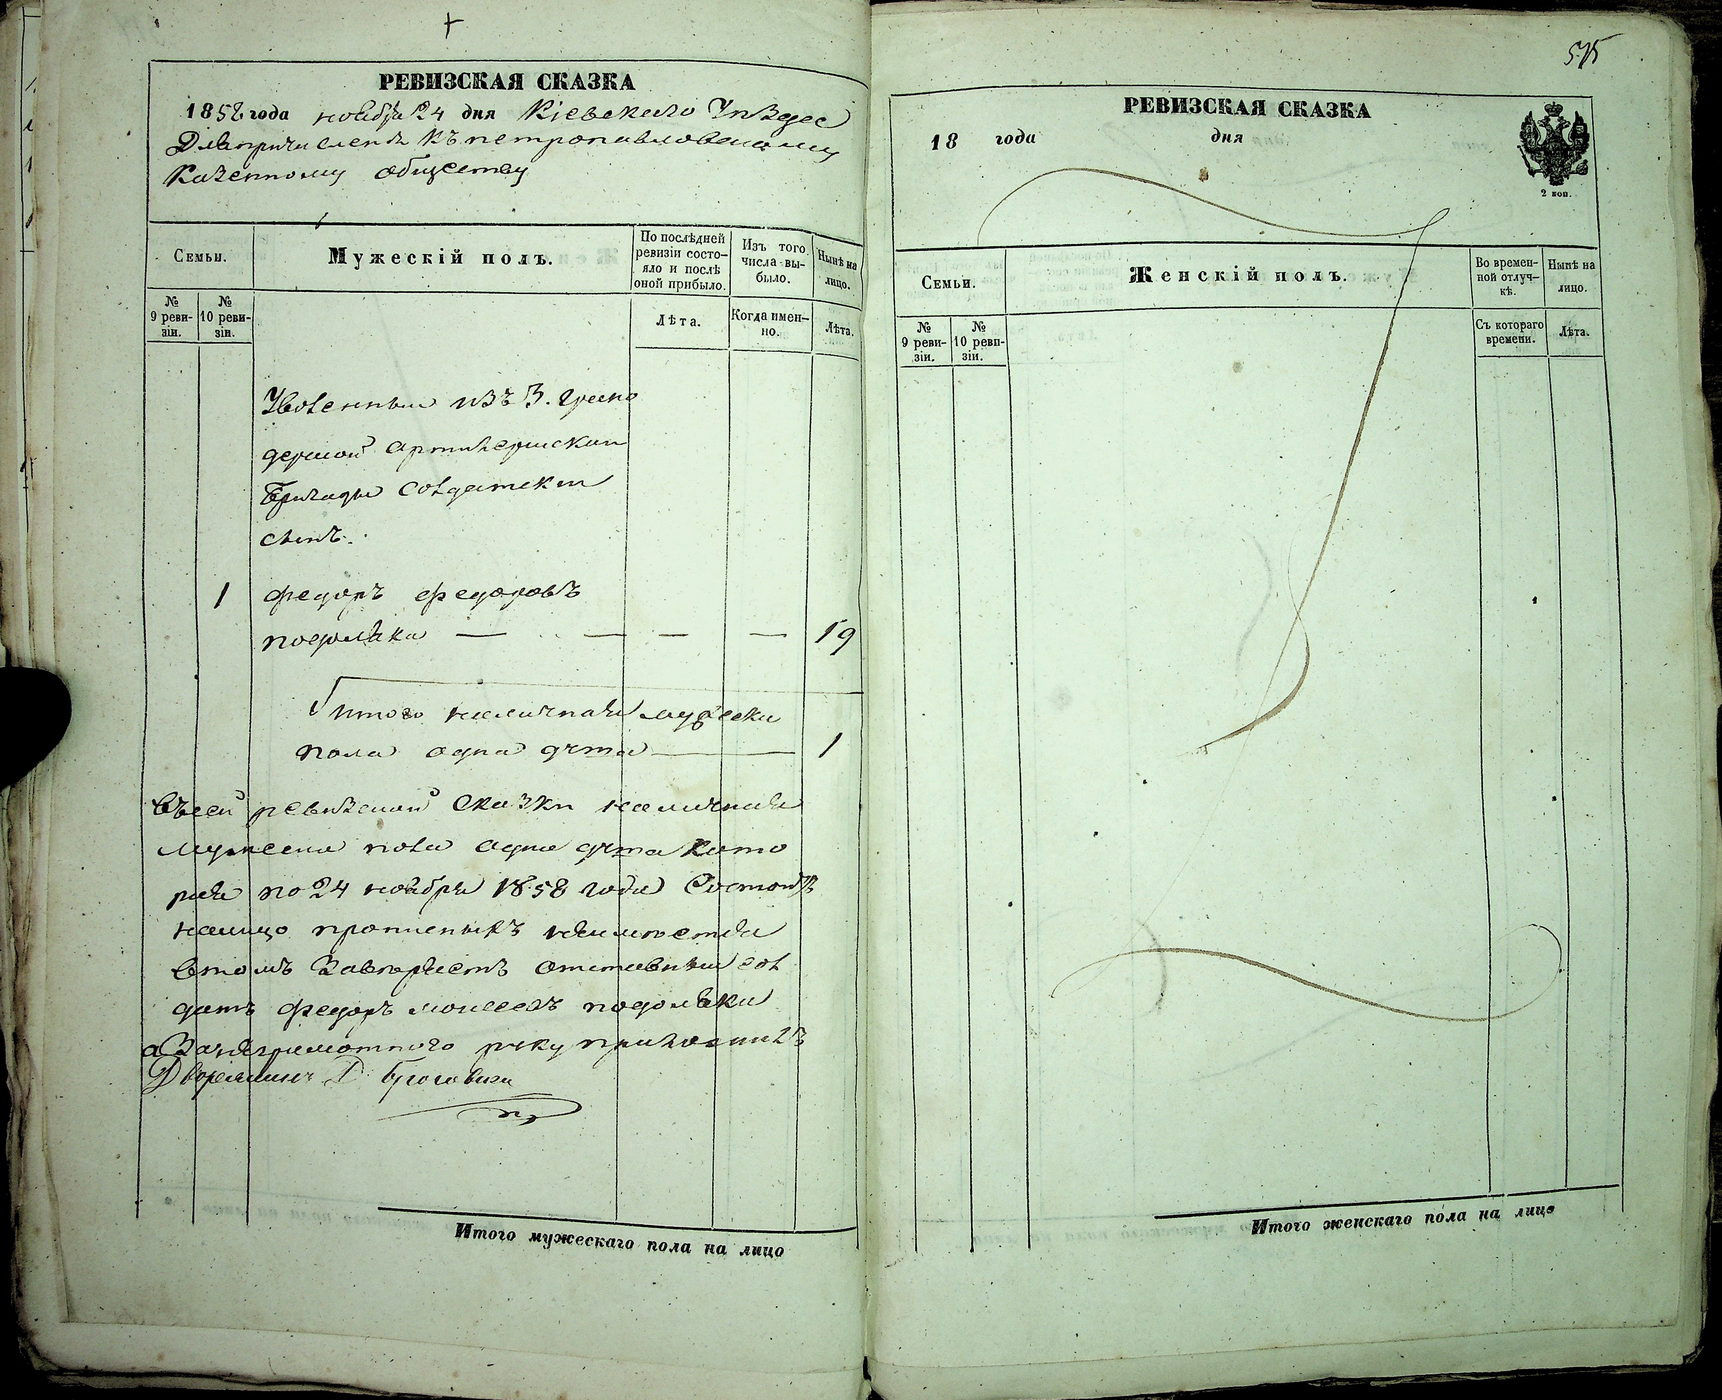 РЕВИЗСКАЯ СКАЗКА
1858 года ноября 24 дня Кіевскаго Уѣзда
Для причисленія къ петропавловскому
Казенному обществу
Семьи.
Мужескій полъ.
По послѣдней ревизіи состояло и послѣ оной прибыло.
Изъ того числа выбыло.
Нынѣ на лицо.
№ 9 ревизіи.
№ 10 ревизіи.
Лѣта.
Когда именно.
Лѣта.
Уволенный изъ 3. грена
дерской артилерискои
Бригады солдатскии
сынъ.
1 федоръ федоровъ
подоляка — — — — 19
итого наличная мужеска
пола одна душа — 1
въсей ревизской сказки наличная
мужеска пола одна душа кото
рая по 24 ноября 1858 года Состоитъ
налицо
втомъ отставныи сол
датъ федоръ моисеевъ подоляка
а За неграмотного руку приложилъ
Дворянинъ
Итого мужескаго пола на лицо
575
РЕВИЗСКАЯ СКАЗКА
18 года дня
2 коп.
Семьи.
Женскій полъ.
Во временной отлучкѣ.
Нынѣ на лицо.
№ 9 ревизіи.
№ 10 ревизіи.
Съ котораго времени.
Лѣта.
Итого женскаго пола на лицо